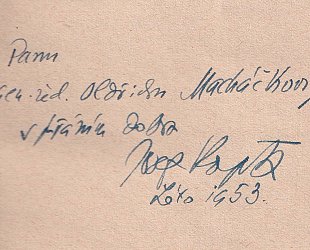 Panu
řed. Oldřichu Macháčkov
v přáním dobra
Josef Kopta
Léto 1953.